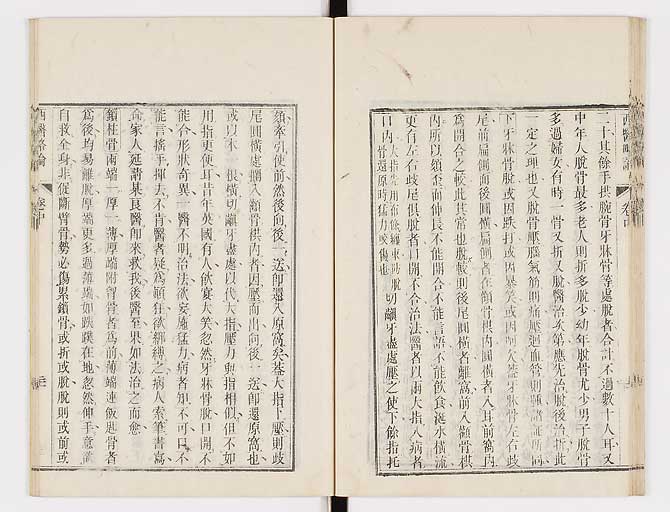 二十其餘手拱腕骨牙牀骨等處脫者合計不過數十人耳又
中年人脫骨最多老人則折多脫少幼年脫骨尤少男子脫骨
多過婦女有時一骨又折又脫醫治次第應先治脫後治折此
一定之理也又脫骨壓腦氣筋則痛壓迴血管則腫諸証所同
下牙牀骨脫或因跌打或因暴笑或因呵欠蓋牙牀骨左右歧
尾前扁側而後圓橫扁側者在顴骨拱內圓橫者入耳前窩內
為開合之較此其常也脫骹則後尾圓橫者離窩前入顴骨拱
內所以頷歪而伸長不能開合不能言語不能飲食涎水橫流
更有左右歧尾俱脫者口開不合治法醫者以兩大指入病者
口內 大指先用布條纏裹防脫骨還原時猛力咬傷也 切齦牙盡處壓之使下餘指托
頷牽引使前然後向後一送卽還入原窩矣蓋大指下壓則歧
尾圓橫處擱入顴骨拱內者因壓而出向後一送卽還原窩也
或以木一根橫切齦牙盡處以代大指壓力與指相似但不如
用指更便耳昔年英國有人飲宴大笑忽然牙牀骨脫口開不
能合形狀奇異一醫不明治法欲妄施猛力病者知不可口不
能言搖手揮去不肯醫者疑為顛狂欲綁縛之病人索筆書寫
命家人延請某良醫卽來救我後醫至果如法治之而愈
鎖柱骨兩端一厚一薄厚端附胷骨者為前薄端連飯匙骨者
為後均易離脫厚端更多過薄端如跌撲在地忽然伸手意圖
自救全身非從斷臂骨勢必傷累鎖骨或折或脫脫則或前或
西醫略論
卷中